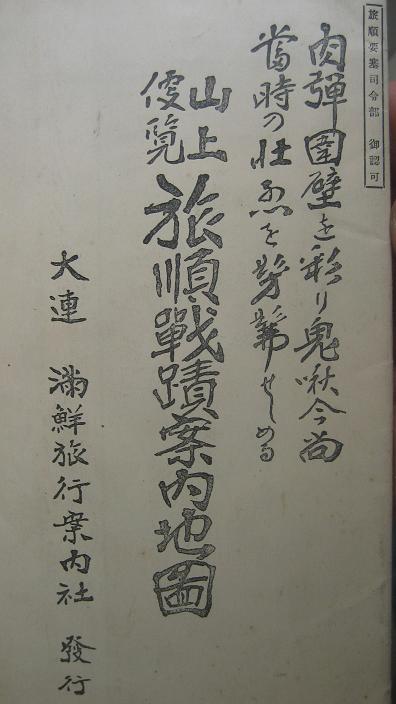 旅順要塞司令部 御認可
肉弾囲壁を彩り鬼啾今尚
當時の壮烈を髣髴せしめる
山上
優覧
旅順戰蹟案内地圖
大連 満鮮旅行案内社 發行